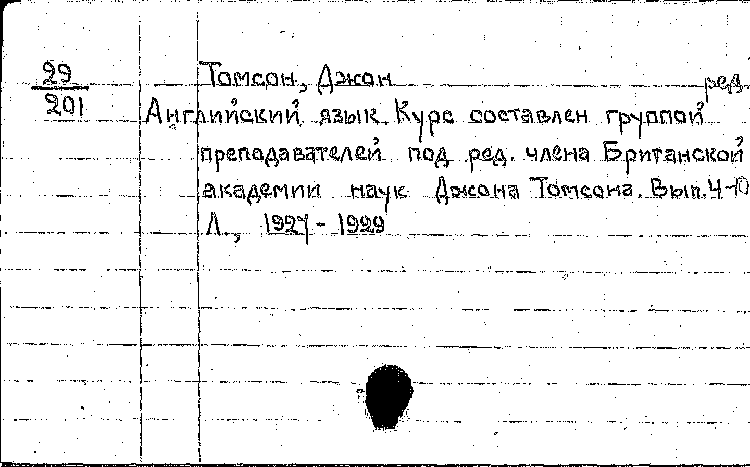 29
201
Томсон, Джон ред.
Английский язык. Курс составлен группой
преподавателей под ред. члена Британской
академии наук Джона Томсона. Вып. 4-10
Л., 1927 - 1929